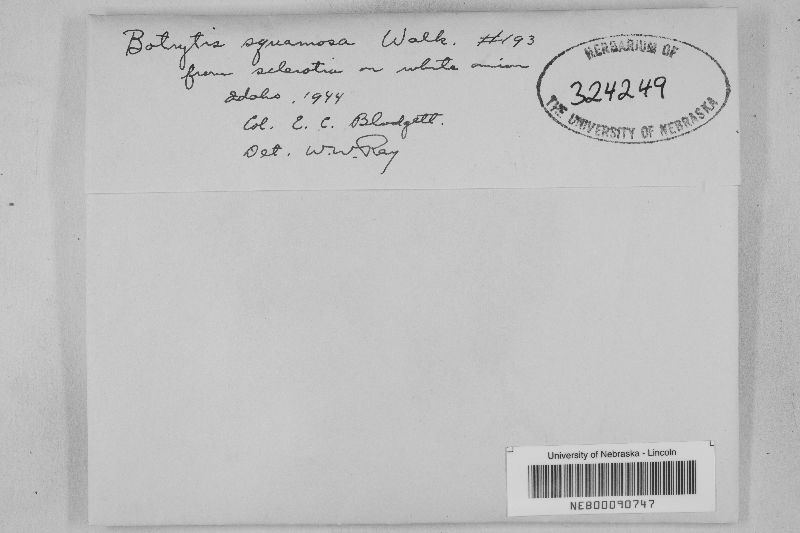 Botrytis squamosa Walk. #193
from sclerotia on white onion
Idaho, 1944
Col. E. C. Blodgett.
Det. W.W. Ray
HERBARIUM OF
324249
THE UNIVERSITY OF NEBRASKA
University of Nebraska - Lincoln
NEB00090747